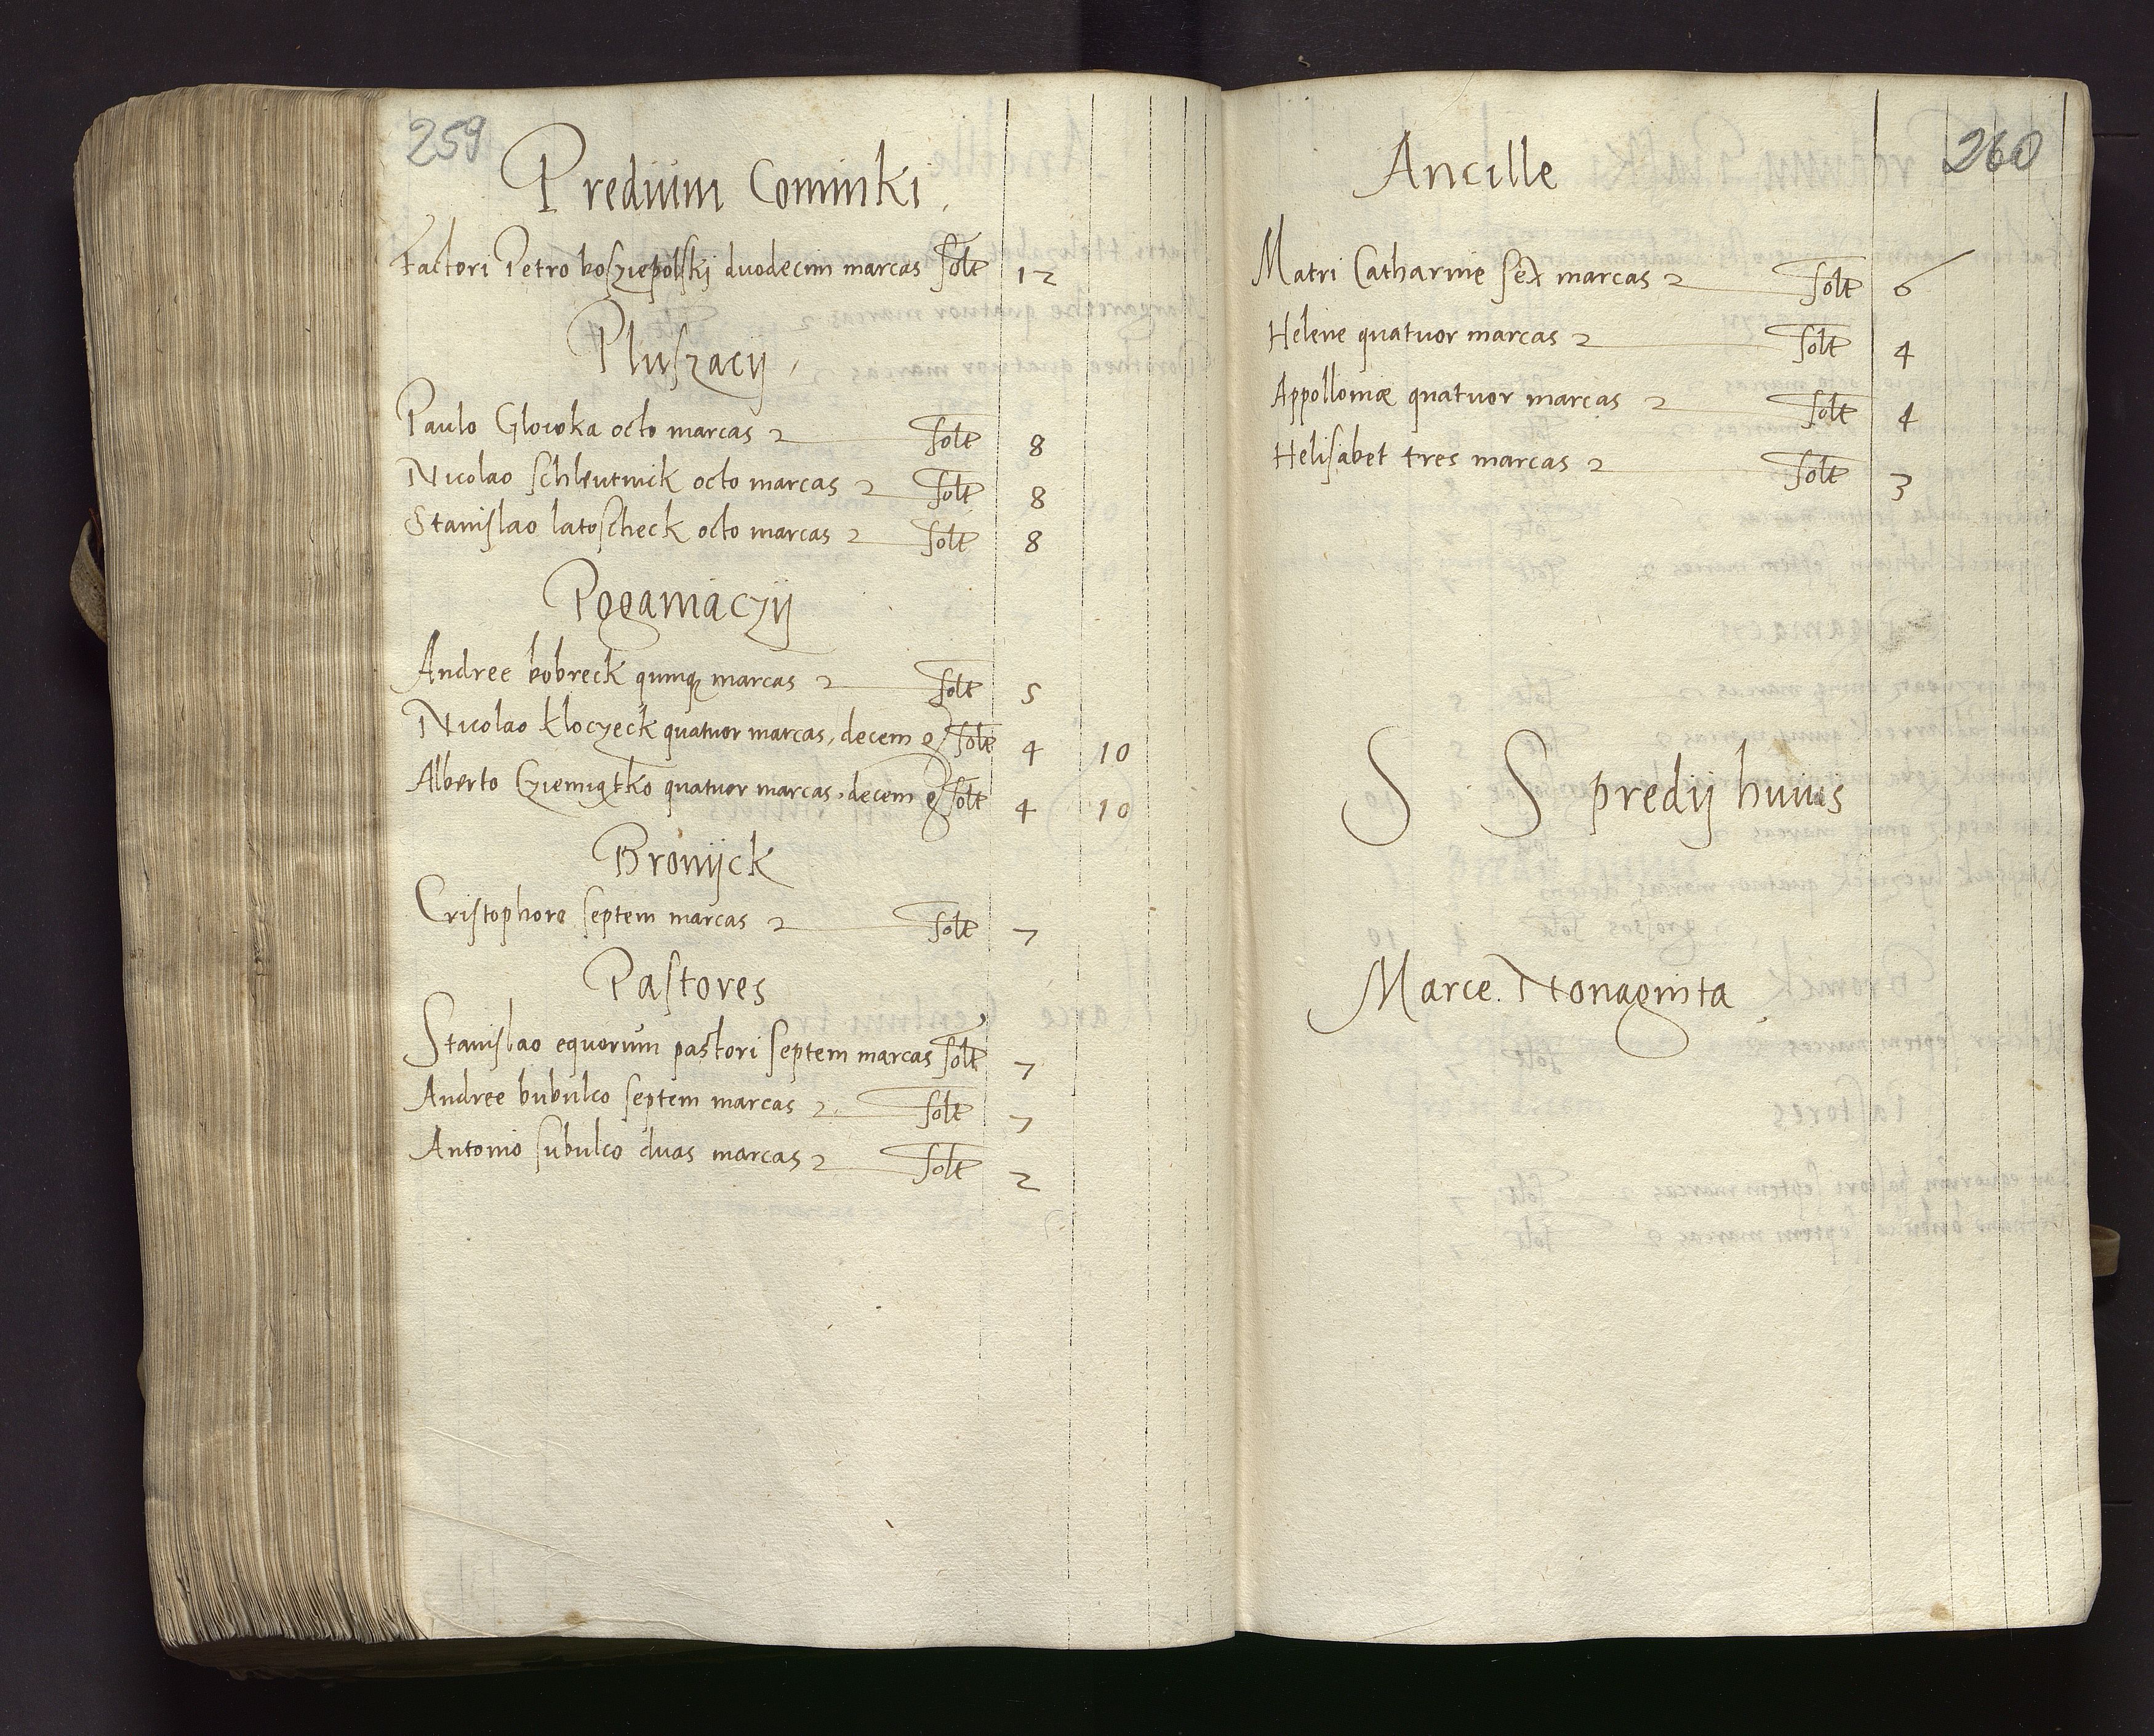 259
Predium Cominki
Factori Petro kosziepolskij duodecim marcas solt 12
Pluszacij
Paulo Glowka octo marcas solt 8
Nicolao schleutnick octo marcas solt 8
Stanislao latoscheck octo marcas solt 8
Poganiaczij
Andree bobreck quinq marcas solt 5
Nicolao kloczeck quatuor marcas, decem g solt 4 10
Alberto quatuor marcas, decem g solt 4 10
Bronijck
Cristophoro septem marcas solt 7
Pastores
Stanislao equorum pastori septem marcas solt 7
Andree bubulco septem marcas solt 7
Antonio subulco duas marcas solt 2
260
Ancille
Matri Catharine sex marcas solt 6
Helene quatuor marcas solt 4
Appolloniæ quatuor marcas solt 4
Helisabet tres marcas solt 3
S S predij huius
Marce. Nonaginta